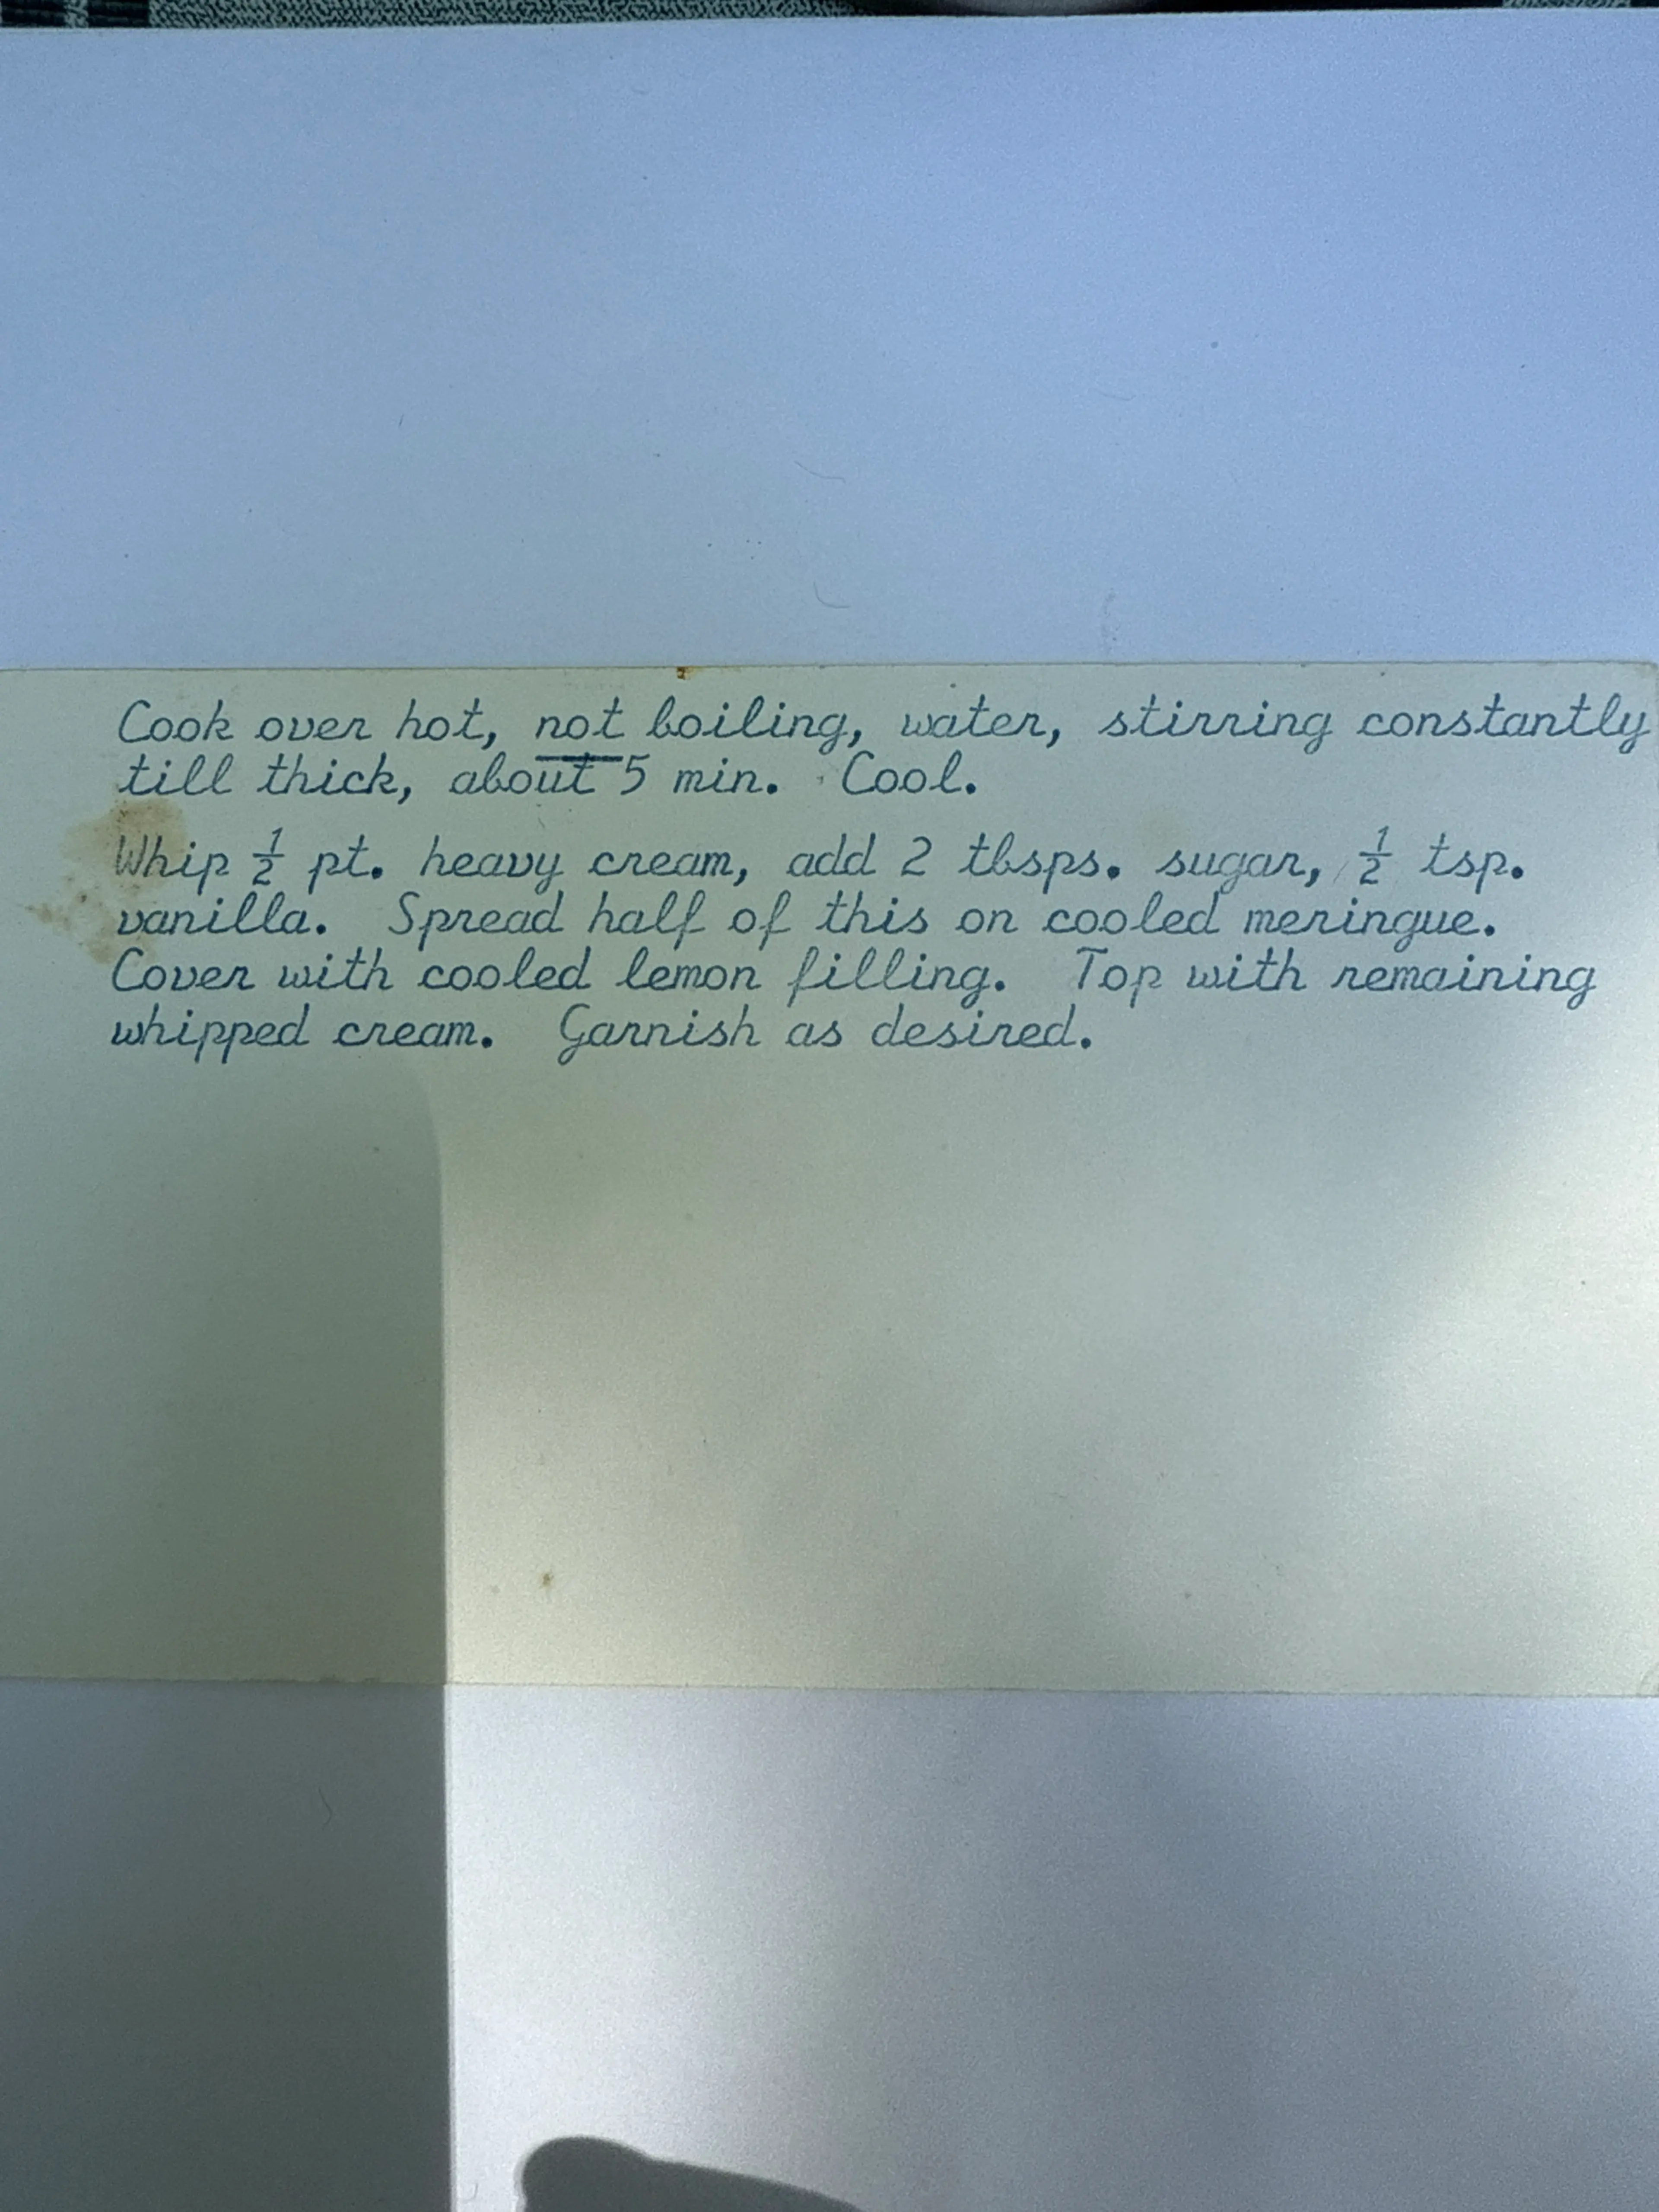 Cook over hot, not boiling, water, stirring constantly
till thick, about 5 min. Cool.
Whip ½ pt. heavy cream, add 2 tbsps. sugar, ½ tsp.
vanilla. Spread half of this on cooled meringue.
Cover with cooled lemon filling. Top with remaining
whipped cream. Garnish as desired.